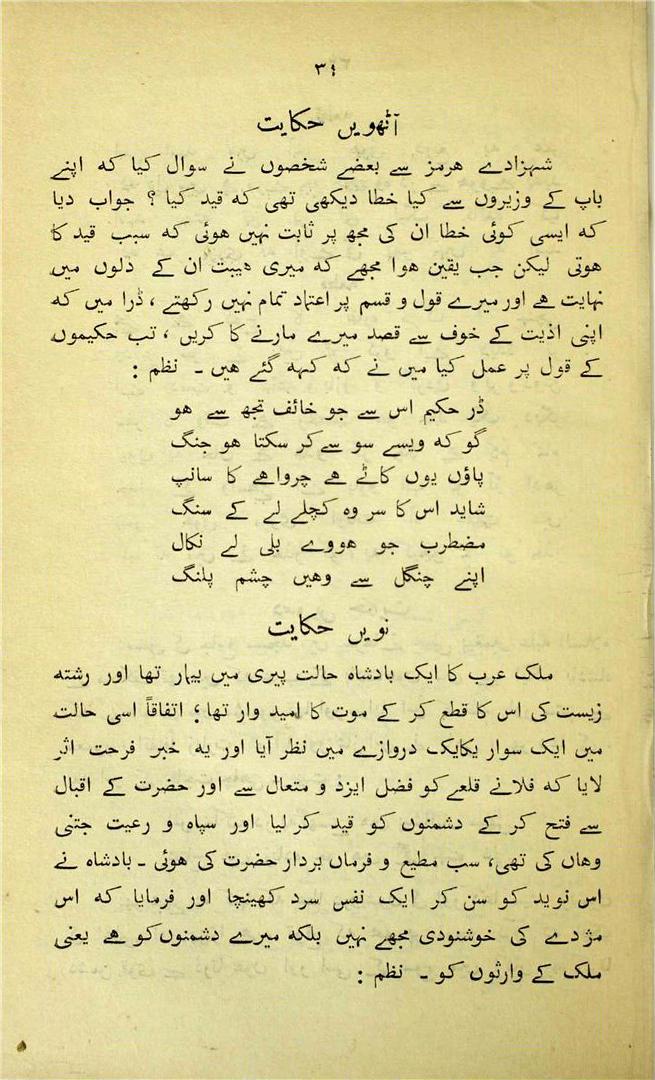 ۳۹
آٹھویں حکایت
شہزادے ہرمز سے بعضے شخصوں نے سوال کیا کہ اپنے
باپ کے وزیروں سے کیا خطا دیکھی تھی کہ قید کیا ؟ جواب دیا
کہ ایسی کوئی خطا ان کی مجھ پر ثابت نہیں ہوئی کہ سبب قید کا
ہوتی لیکن جب یقین ہوا مجھے کہ میری ہیبت ان کے دلوں میں
نہایت ہے اور میرے قول و قسم پر اعتماد تمام نہیں رکھتے ، ڈرا میں کہ
اپنی اذیت کے خوف سے قصد میرے مارنے کا کریں ، تب حکیموں
کے قول پر عمل کیا میں نے کہ کہہ گئے ہیں ۔ نظم :
ڈر حکیم اس سے جو خائف تجھ سے ہو
گو کہ ویسے سو سے کر سکتا ہو جنگ
پاؤں یوں کاٹے ہے چرواہے کا سانپ
شاید اس کا سر وہ کچلے لے کے سنگ
مضطرب جو ہووے بلی لے نکال
اپنے چنگل سے وہیں چشم پلنگ
نویں حکایت
ملک عرب کا ایک بادشاہ حالت پیری میں بیمار تھا اور رشتہ
زیست کی اس کا قطع کر کے موت کا امید وار تھا ؛ اتفاقاً اسی حالت
میں ایک سوار یکایک دروازے میں نظر آیا اور یہ خبر فرحت اثر
لایا کہ فلانے قلعے کو فضل ایزد و متعال سے اور حضرت کے اقبال
سے فتح کر کے دشمنوں کو قید کر لیا اور سپاہ و رعیت جتنی
وہاں کی تھی، سب مطیع و فرماں بردار حضرت کی ہوئی ۔ بادشاہ نے
اس نوید کو سن کر ایک نفس سرد کھینچا اور فرمایا کہ اس
مژدے کی خوشنودی مجھے نہیں بلکہ میرے دشمنوں کو ہے یعنی
ملک کے وارثوں کو ۔ نظم :